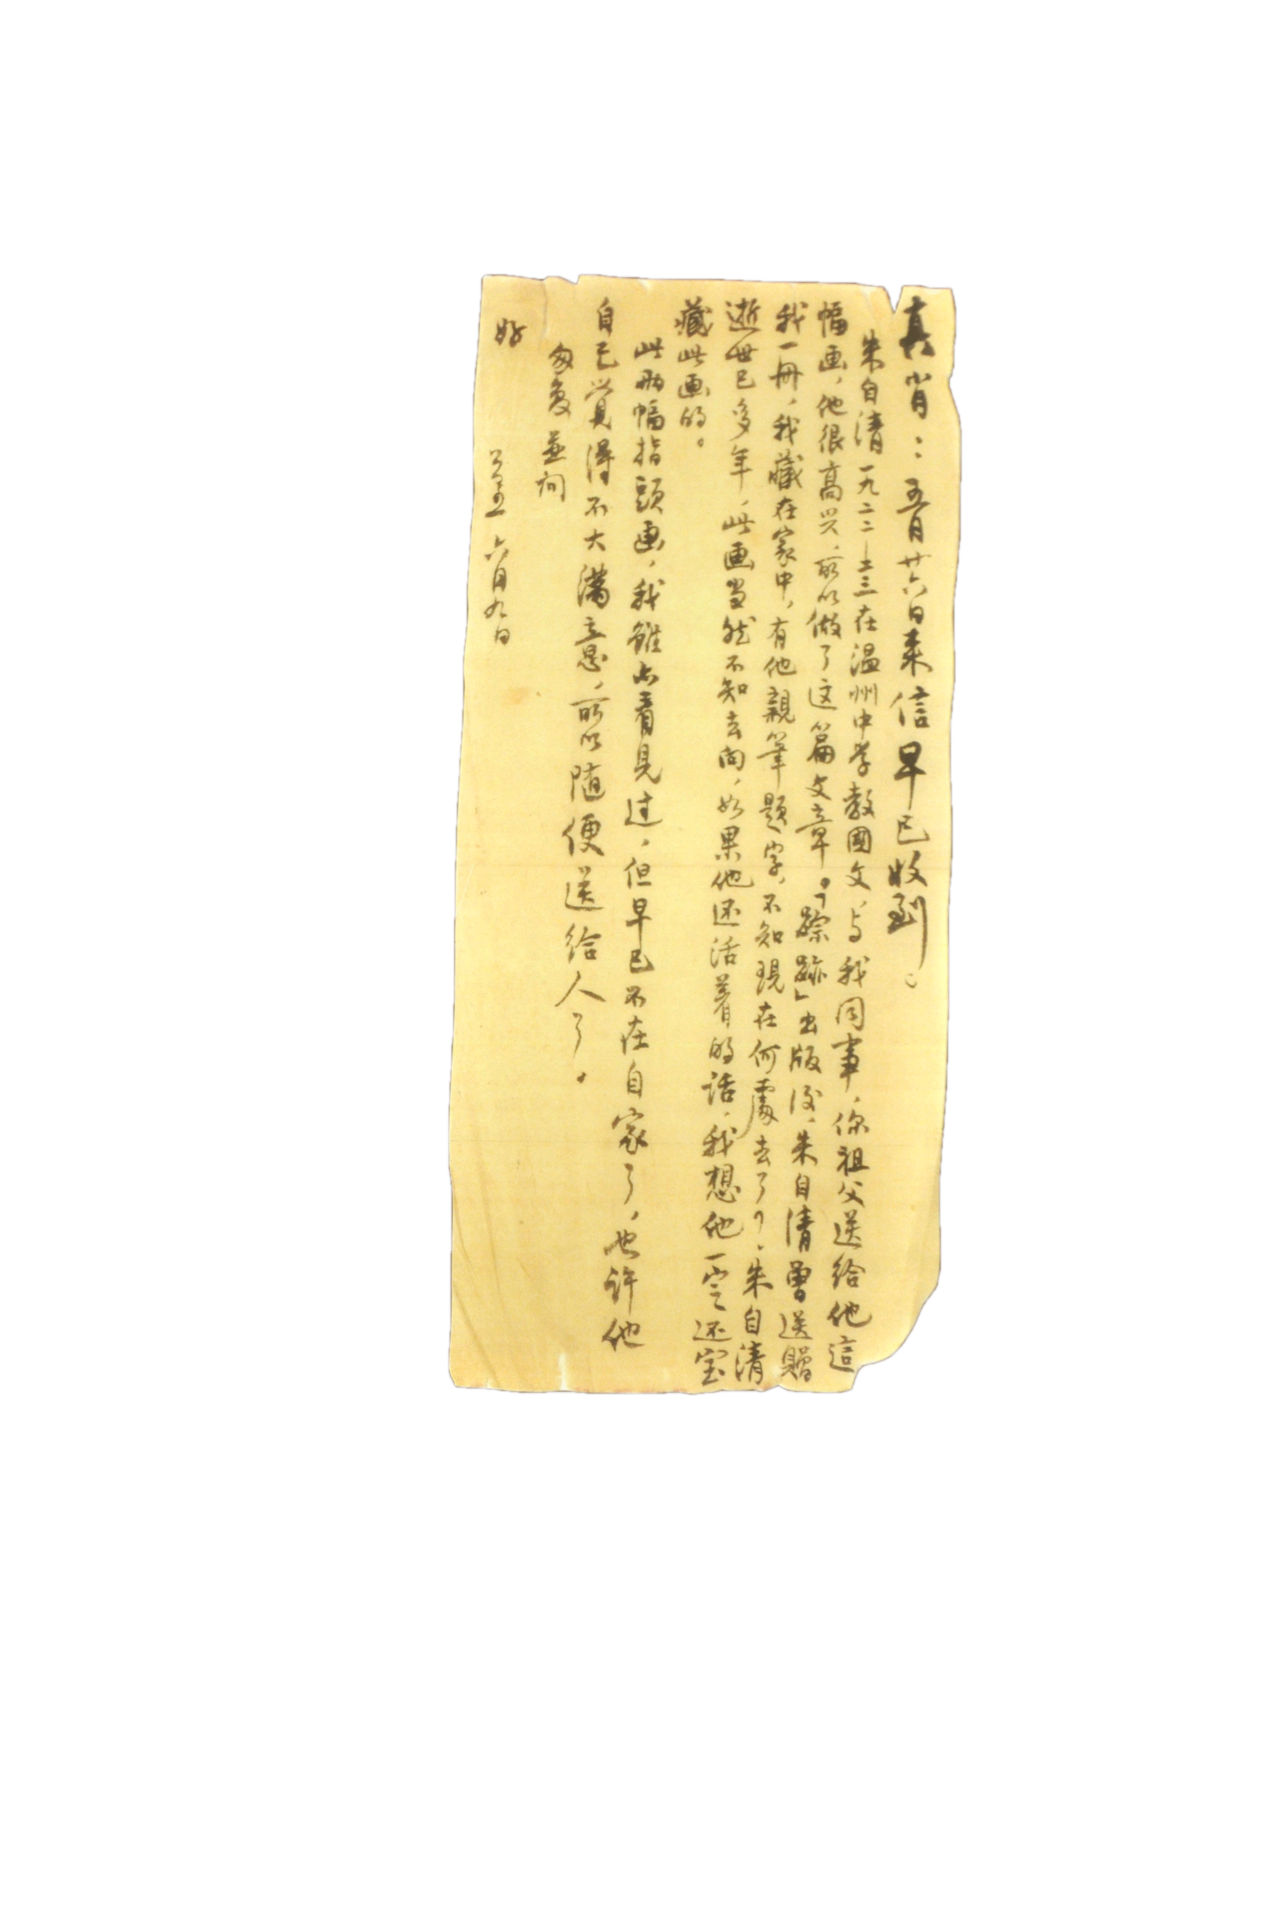 真肖：五月廿六日来信早已收到。
朱自清一九二二—二三在温州中学教國文，与我同事，你祖父送给他這
幅画，他很高兴，所以做了这篇文章。「踪跡」出版后，朱自清曾送贈
我一册，我藏在家中，有他親筆題字，不知現在何處去了？朱自清
逝世已多年，此画当然不知去向，如果他还活着的话，我想他一定还宝
藏此画的。
此兩幅指頭画，我雖也看見过，但早已不在自家了，也许他
自己覺得不大满意，所以随便送给人了。
匆复並问
好
六月九日